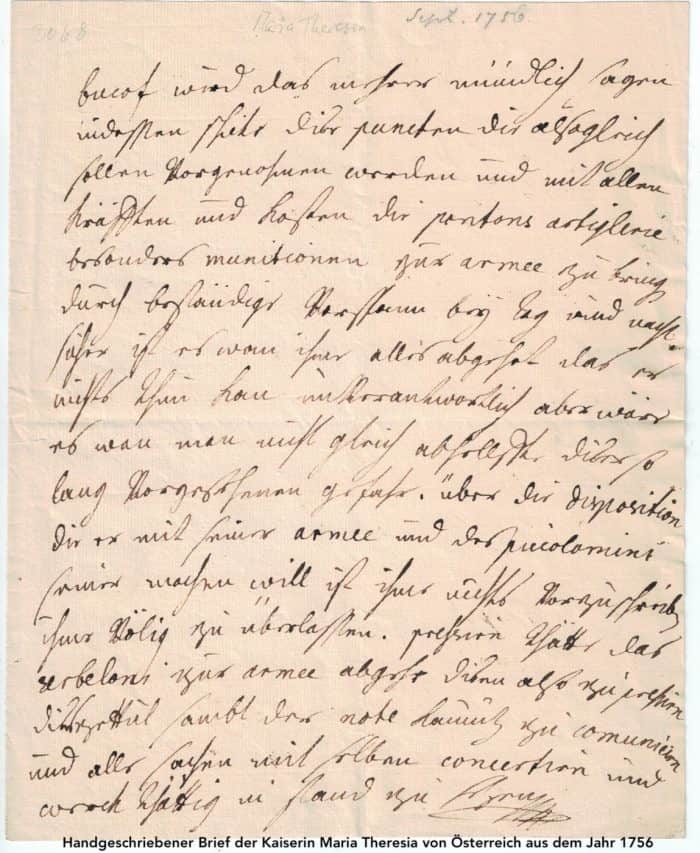 3068 Maria Theresia Sept. 1756.
wird das mehrer mündlich sagen
indessen dise puncten die alsogleich
sollen Vorgenohmen werden und mit allen
Kräfften und Kosten die pontons artiglerie
besonders munitionen zur armee zu bring
durch beständige Vorspann bey tag und nacht.
sicher ist es wan ihme alles abgehet das er
nichts thun kan unverantwortlich aber wäre
es wan man nicht gleich abhelffete diser so
lang Vorgesehenen gefahr. über die disposition
die er mit seiner armee und des picolomini
seiner machen will ist ihme nichts Vorzuschreib
ihme Völig zu überlassen. das
zur armee abgehe disen also zu
sambt der note Kaunitz zu comuniciren
und alle sachen mit selben concertiren und
in stand zu
Handgeschriebener Brief der Kaiserin Maria Theresia von Österreich aus dem Jahr 1756